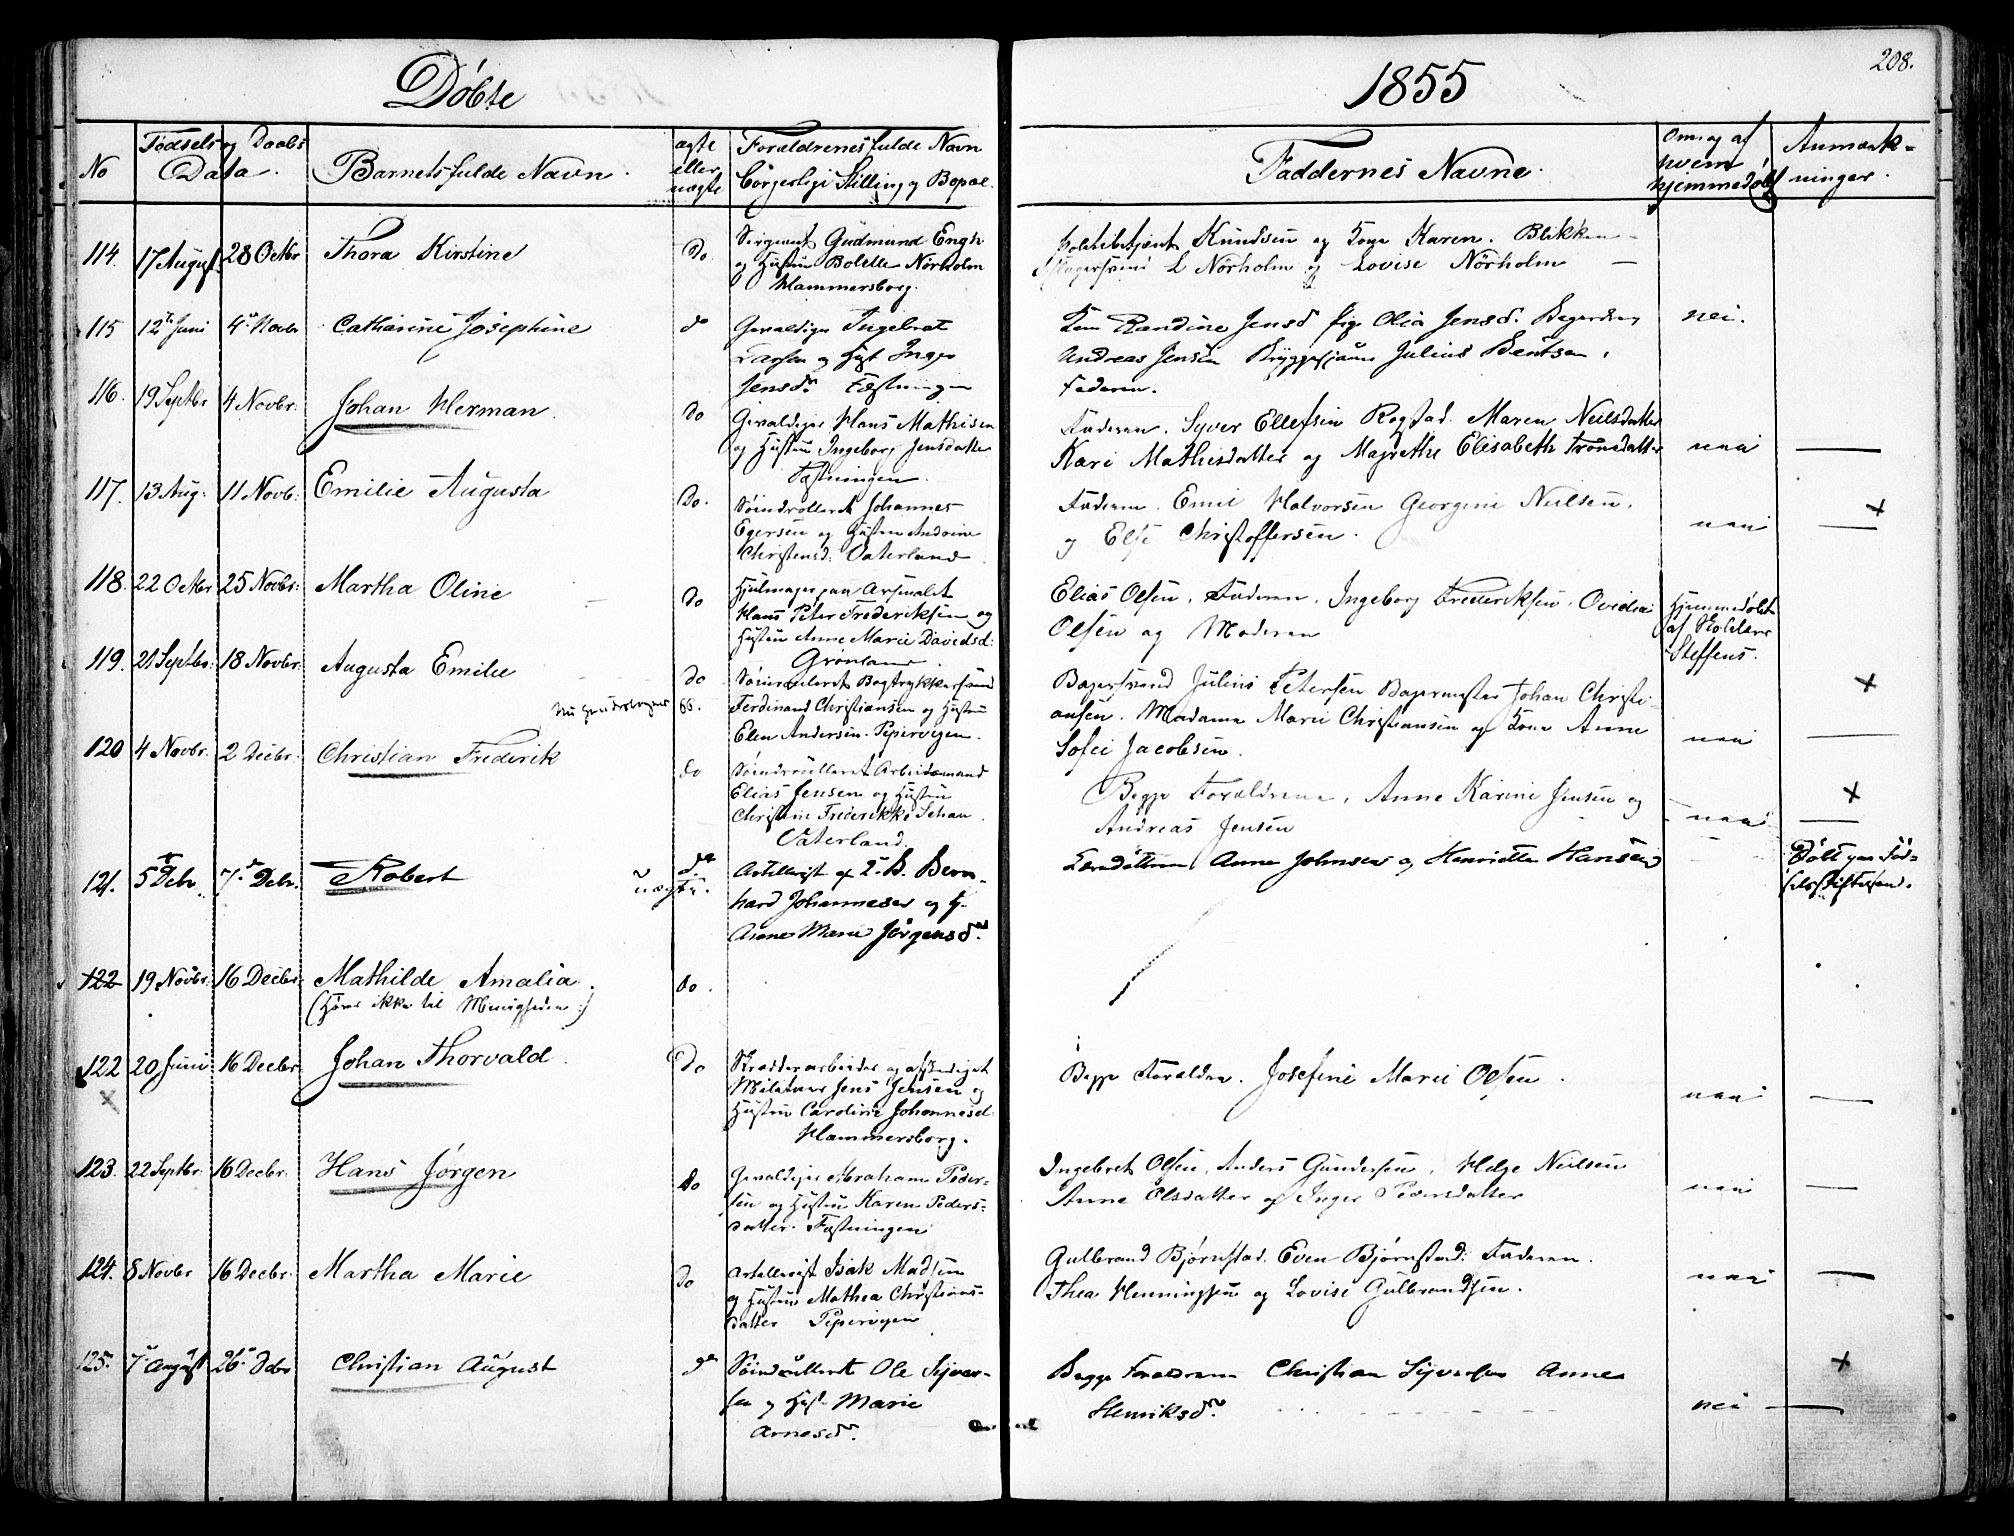 Døbte
1855
208.
No
Fødsels og Daabs
Data.
Barnets fulde Navn.
ægte
eller
uægte
Forældrenes fulde Navn
borgerlige Stilling og Bopæl.
Faddernes Navne.
Om og af
hvem
hjemmedøbt
Anmærk-
ninger.
114. 17 August 28 Octbr Thora Kirstine Do.
Sergeant Gudmund Engh
og Hustru Bolette Nørholm
Hammersborg.
Politibetjent Knudsen og Kone Karen. Blikken-
slagersvend L Nørholm og Lovise Nørholm —
115 12te Juni 4de Novbr Catharine Josephine do
Gevaldiger Ingebret
Larsen og Hust Inger
Jensdr. Fæstningen
Kone Randine Jensd Pige Olia Jensd.
Andreas Jensen Julius Bentsen.
Faderen.
nei.
116. 19 Septbr 4 Novbr. Johan Herman. do
Gevaldiger Hans Mathisen
og Hustru Ingeborg Jensdatter
Fæstningen.
Faderen. Syver Ellefsen Rogstad. Maren Neilsdatter
Kari Mathisdatter og Magrethe Elisabeth Tronsdatter
naai —
117. 13 Aug. 11 Novb. Emilie Augusta Do.
Søindrolleret Johannes
Egersen og Hustru Andrine
Christensd. Vaterland
Faderen. Emil Halvorsen Georgine Neilsen.
og Else Christoffersen.
naai — x
118. 22 Octbr 25 Novbr: Martha Oline — do
Hjulmager paa Arsenalet
Hans Peter Frederiksen og
Hustru Anne Marie Davidsd.
Grønland.
Elias Olsen. Faderen. Ingeborg Frederiksen.
Olsen og Moderen
Hjemmedøbt
af
Steffens.
119. 21 Septbr: 18 Novbr. Augusta Emilie do
Søindrulleret Bogtrykkersvend
Ferdinand Christiansen og Hustru
Elen Andersen. Pipervigen.
Bagersvend Julius Petersen Bagermester Johan Christi-
ansen. Madame Marie Christiansen og Kone Anne
Sofie Jacobsen.
naai — x
120 4 Novbr. 2 Decbr. Christian Frederik do
Søindrulleret Arbeidsmand
Elias Jensen og Hustru
Christine Frederikke Schau.
Vaterland.
Begge Forældrene, Anne Karine Jensen og
Andreas Jensen
naai — x
121. 5te Debr 7de Debr. Robert do.
uægte.
Artillerist af 2. B. Bern-
hard Johannesen og H.
Anne Marie Jørgensdr.
Anne Johnsen og Henriette Hansen
Døbt paa Fød-
selsstiftelsen.
122 19 Novbr. 16 Decbr. Mathilde Amalia. do.
(Hører ikke til Menigheden.)
122 20 Juni 16 Decbr Johan Thorvald. Do
x
Skrædderarbeider og afskediget
Militær Jens Jensen og
Hustru Caroline Johannesd.
Hammersborg.
Begge Forældre. Josefine Marie Olsen.
naai —
123. 22 Septbr. 16 Decbr. Hans Jørgen do
Gevaldiger Abraham Peder-
sen og Hustru Karen Peders-
datter. Fæstningen
Ingebret Olsen, Anders Gundersen, Helge Neilsen
Anne Olsdatter og Inger Pedersdatter
naai —
124. 8 Novbr 16 Decbr. Martha Marie do
Artillerist Isak Madsen
og Hustru Mathea Christians-
datter Pipervigen
Gulbrand Bjørnstad. Even Bjørnstad. Faderen.
Thea Henningsen og Lovise Gulbrandsen.
naai —
125. 7de August 26de Debr Christian August do
Søindrulleret Ole Syver-
sen og Hust Marie
Arnesdr.
Begge Forældrene Christian Syversen Anne
Henriksdr.
nei — x